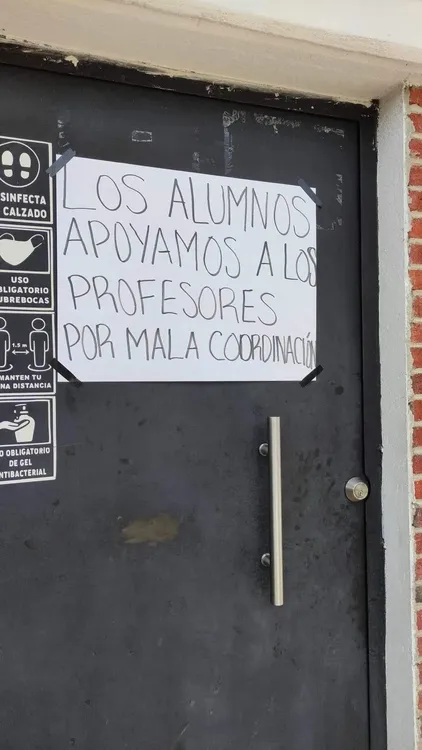 LOS ALUMNOS
APOYAMOS A LOS
PROFESORES
POR MALA COORDINACIÓN
SINFECTA
CALZADO
USO
BLIGATORIO
UBREBOCAS
1.5 m
MANTEN TU
NA DISTANCIA
O OBLIGATORIO
DE GEL
NTIBACTERIAL